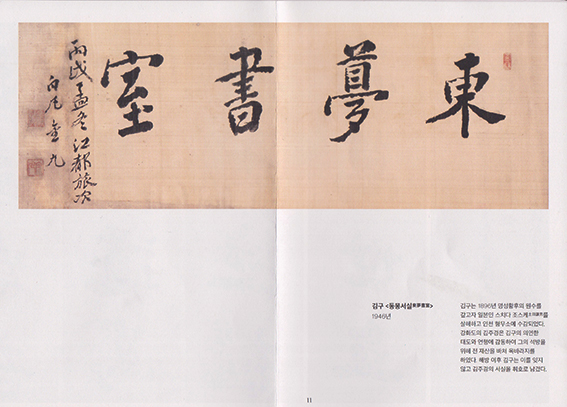 東夢書室
丙戌孟冬江都旅次
白凡 金九
김구 <동몽서실東夢書室>
1946년
김구는 1896년 명성황후의 원수를
갚고자 일본인 스치다 조스케를
살해하고 인천 형무소에 수감되었다.
강화도의 김주경은 김구의 의연한
태도와 언행에 감동하여 그의 석방을
위해 전 재산을 바쳐 옥바라지를
하였다. 해방 이후 김구는 이를 잊지
않고 김주경의 서실을 휘호로 남겼다.
11